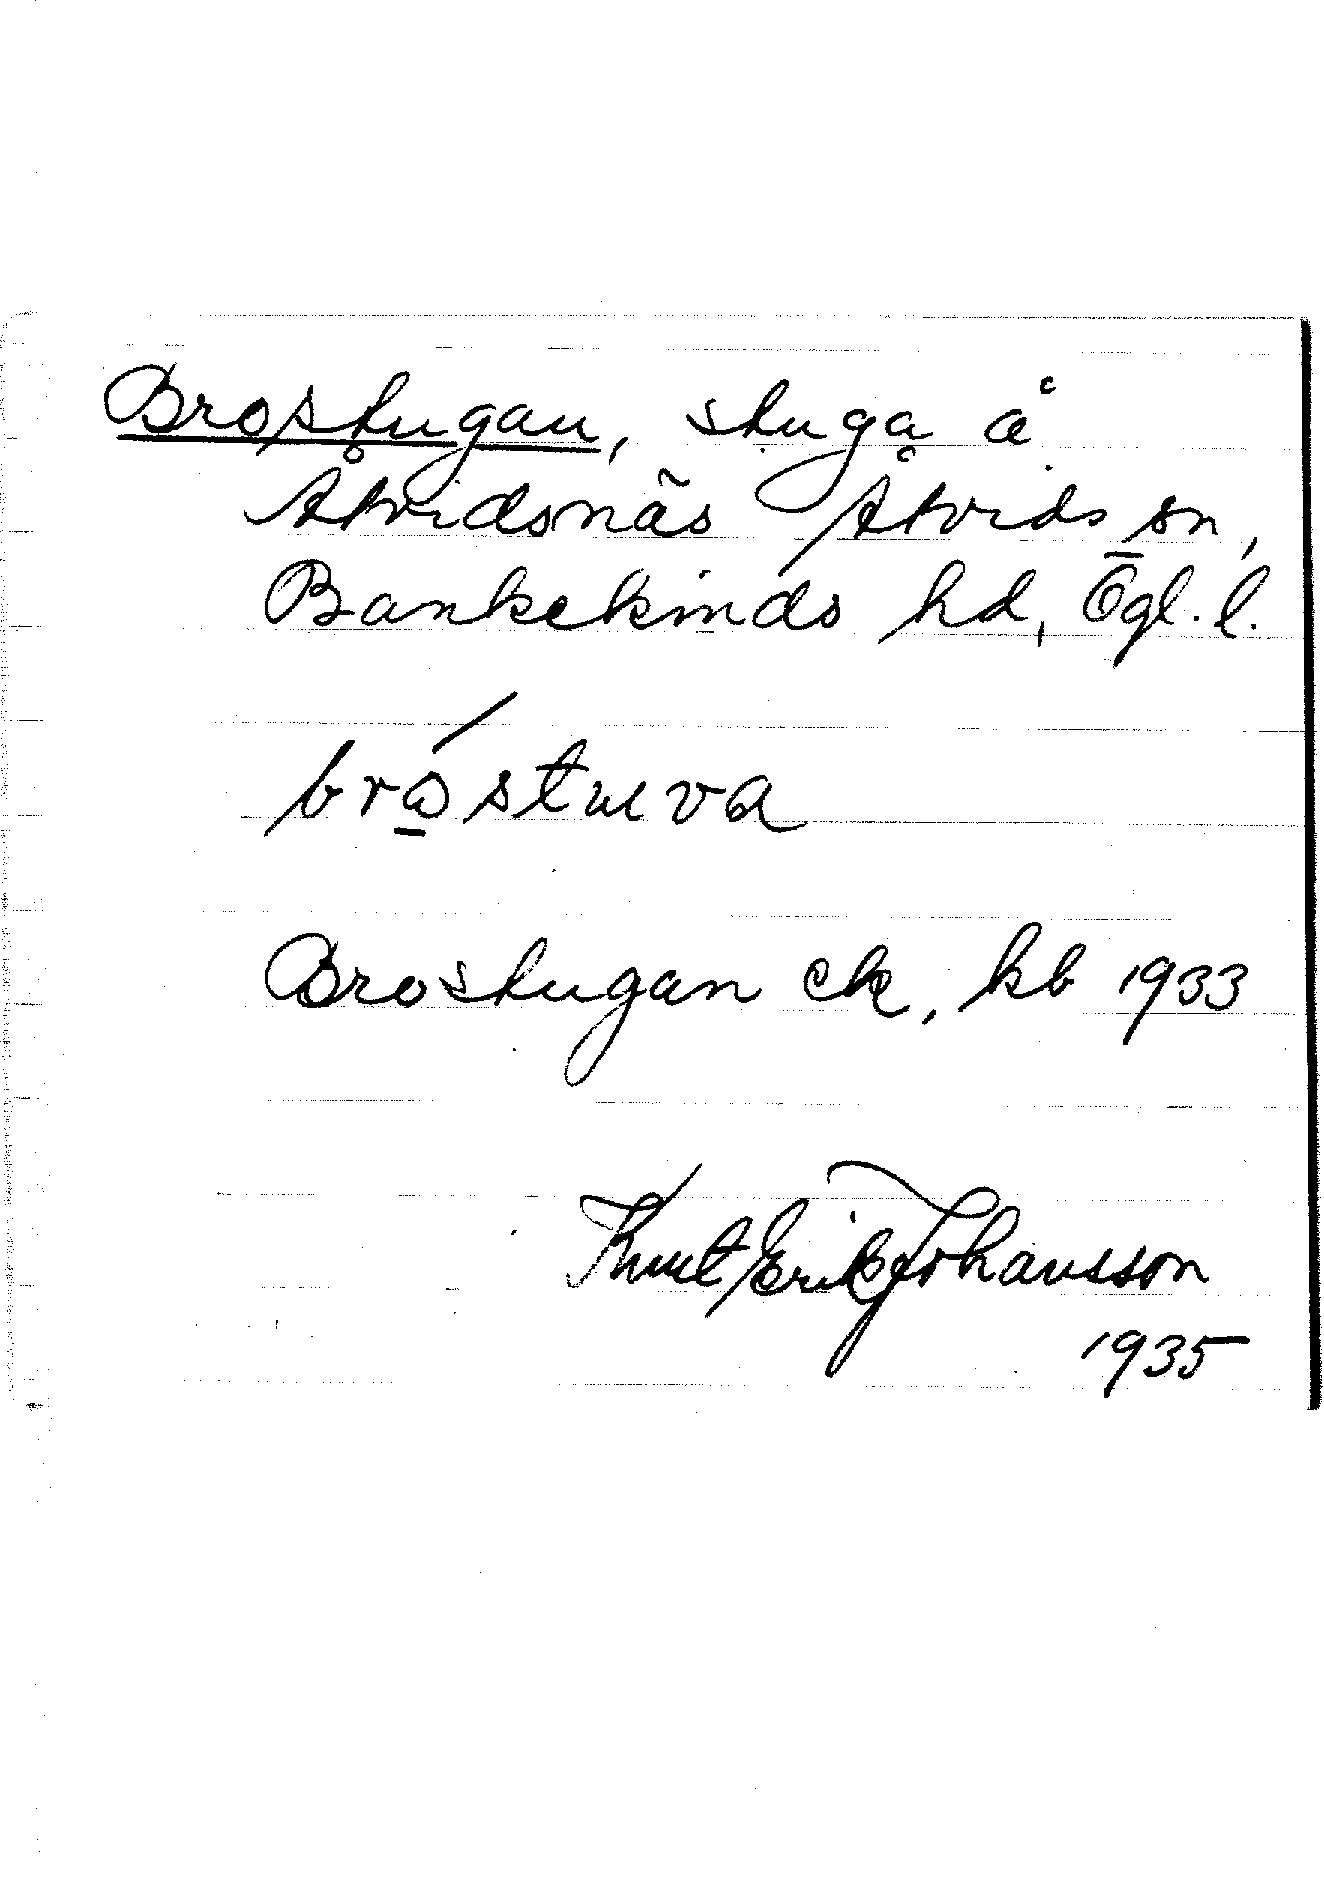 Brostugan, stuga å
Åtvidsnäs Åtvids sn,
Bankekinds hd, Ögl. l.
Brostugan ek, kb 1933
Knut Erik Johansson
1935